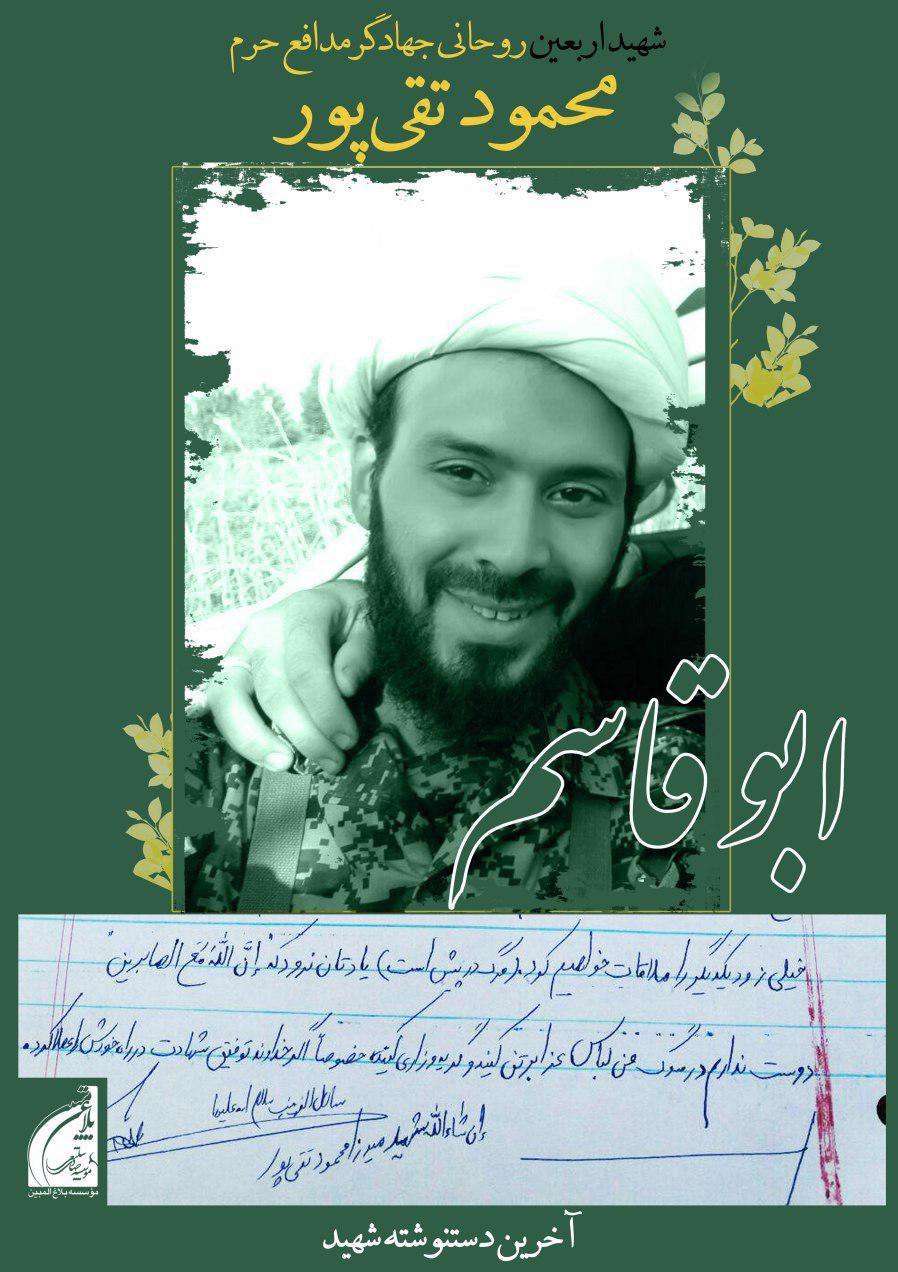 شهید اربعین روحانی جهادگر مدافع حرم
محمود تقی‌پور
ابوقاسم
خیلی زود یکدیگر را ملاقات خواهیم کرد. (مرگ در پیش است) یادتان نرود که "إنَّ اللّهَ مَعَ الصابرین"
دوست ندارم در سوگ من لباس عزا بر تن کنید و گریه و زاری کنید خصوصاً اگر خداوند توفیق شهادت در راه خودش را عطا کرد.
سلام الله علیها
إن شاءالله شهید میرزا محمود تقی‌پور
بلاغ
مؤسسه بلاغ المبین
آخرین دستنوشته شهید